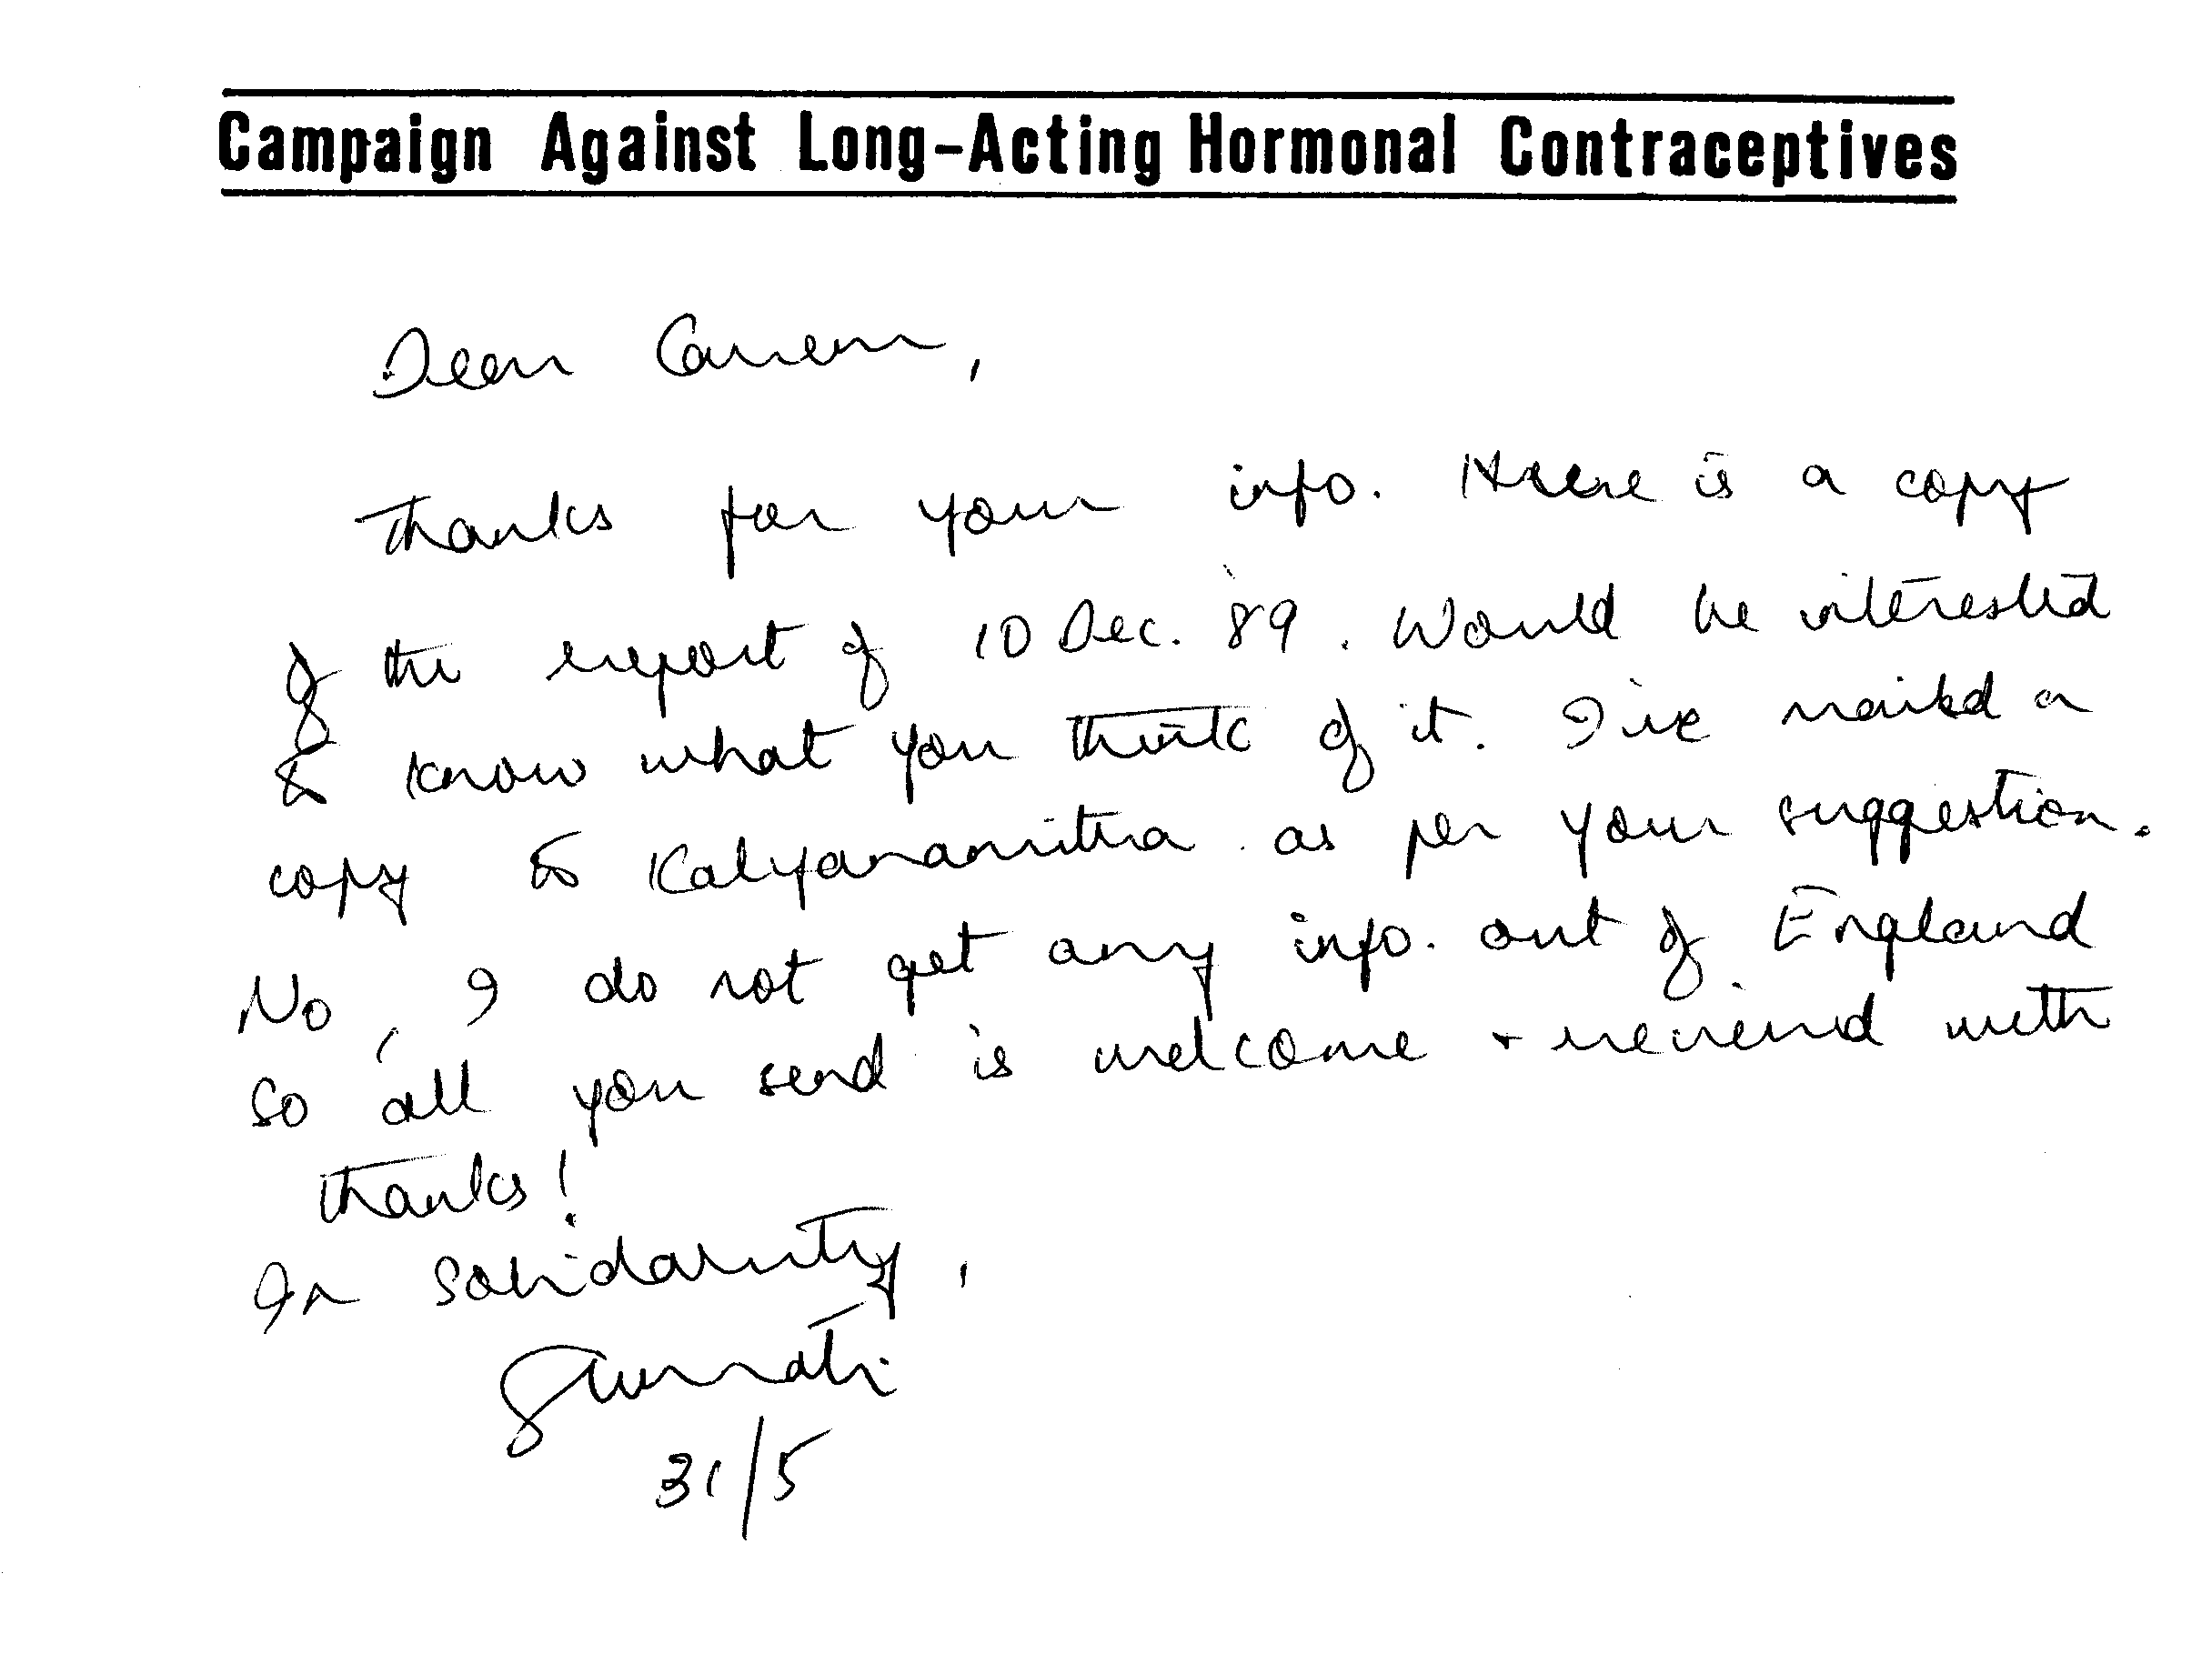 Campaign Against Long-Acting Hormonal Contraceptives
Dear
Thanks for your info. Here is a copy
of the report of 10 Dec. '89. Would be interested
to know what you think of it. I've mailed a
copy to Kalyanamitra as per your suggestion.
No, I do not get any info. out of England
so all you send is welcome + received with
thanks!
In Solidarity,
Sumati
31/5